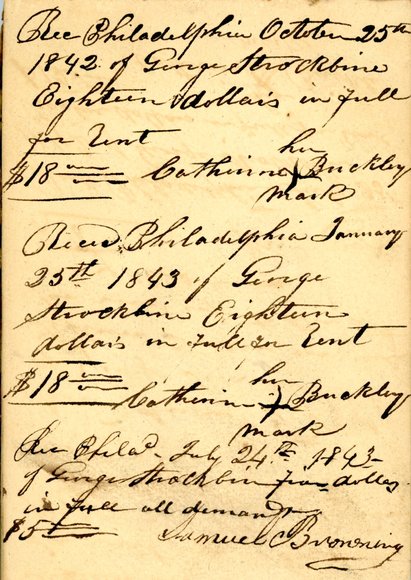 Rec Philadelphia October 25th
1842 of George Strockbine
Eighteen dollars in full
for Rent
her
$18 Catherine X Buckley
mark
Recd Philadelphia January
25th 1843 of George
Strockbine Eighteen
dollars in full for Rent
$18 her
Catherine X Buckley
mark
Rec Philad. July 24th 1843
of George Strockbin five dollas
in full all demands
$5 Samuel C Browning